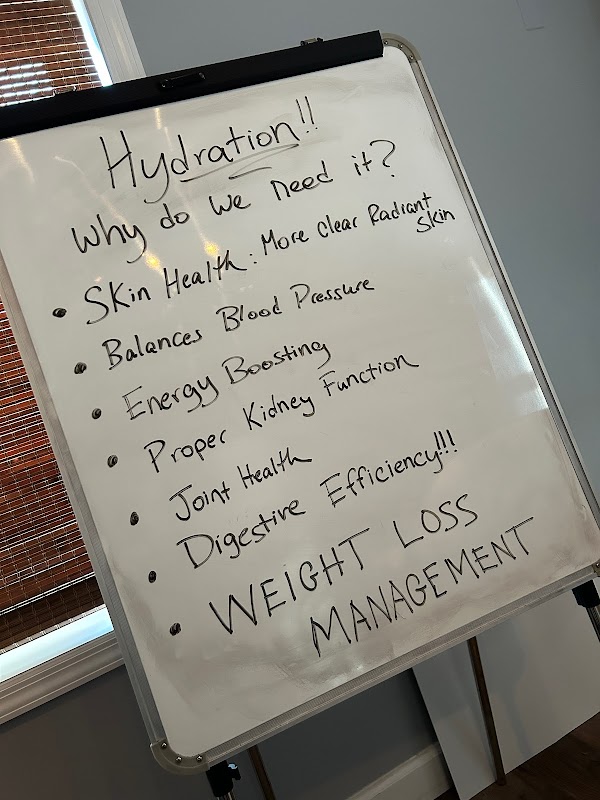 Hydration!!
Why do we need it?
• Skin Health: More Clear Radiant
Skin
• Balances Blood Pressure
• Energy Boosting
• Proper Kidney Function
• Joint Health
• Digestive Efficiency!!!
• WEIGHT LOSS
MANAGEMENT